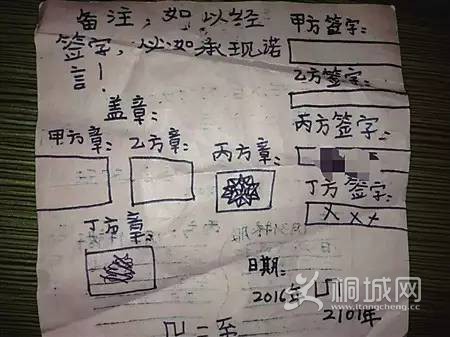 备注，如以经
签字，以如承现诺
言！
盖章：
甲方章：
乙方章：
丙方章：
丁方章：
甲方签字：
乙方签字：
丙方签字：
丁方签字：
xxx
日期：
2016年
2101年
桐城网
itongcheng.cc